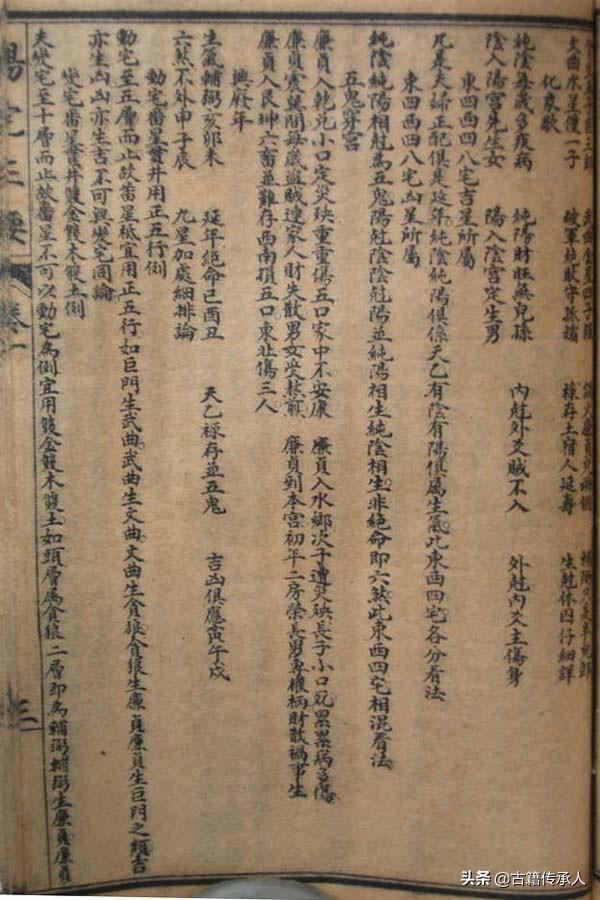 文曲水星僅一子　破軍絕敗守孤孀　祿存土宿人延壽　生尅休囚仔細詳
化象歌
純陰每歲多疾病　純陽財旺無兒孫　內尅外爻賊不入　外尅內爻主傷身
陰入陽宮先生女　陽入陰宮定生男
東四西四八宅吉星所屬
凡是夫婦正配俱是延年純陰純陽俱係天乙有陰有陽俱屬生氣此東西四宅各分看法
東四西四八宅凶星所屬
純陰純陽相尅為五鬼陽尅陰陰尅陽並純陽相生純陰相生非絕命即六煞此東西四宅相混看法
五鬼穿宮
廉貞入乾兌小口定災殃重重傷五口家中不安康　廉貞入水鄉次子遭災殃長子小口死累累病多傷
廉貞震巽間每歲盜賊連家人財失散男女受熬煎　廉貞到本宮初年二房榮長男專權柄財散禍事生
廉貞入艮坤六畜並難存西南損五口東北傷三人
興廢年
生氣輔弼亥卯未　延年絕命巳酉丑　天乙祿存並五鬼　吉凶俱應寅午戌
六煞不外申子辰　九星加處細排論
動宅番星貫井用正五行例
動宅至五層而止故番星祗宜用正五行如巨門生武曲武曲生文曲文曲生貪狼貪狼生廉貞廉貞生巨門之類吉
亦生凶凶亦生吉不可與變宅同論
變宅番星貫井雙金雙木雙土例
夫變宅至十層而止故番星不可以動宅為例宜用雙金雙木雙土如頭層屬貪狼二層即為輔弼輔弼生廉貞廉貞
陽宅三要　卷一
頭条 @古籍传承人